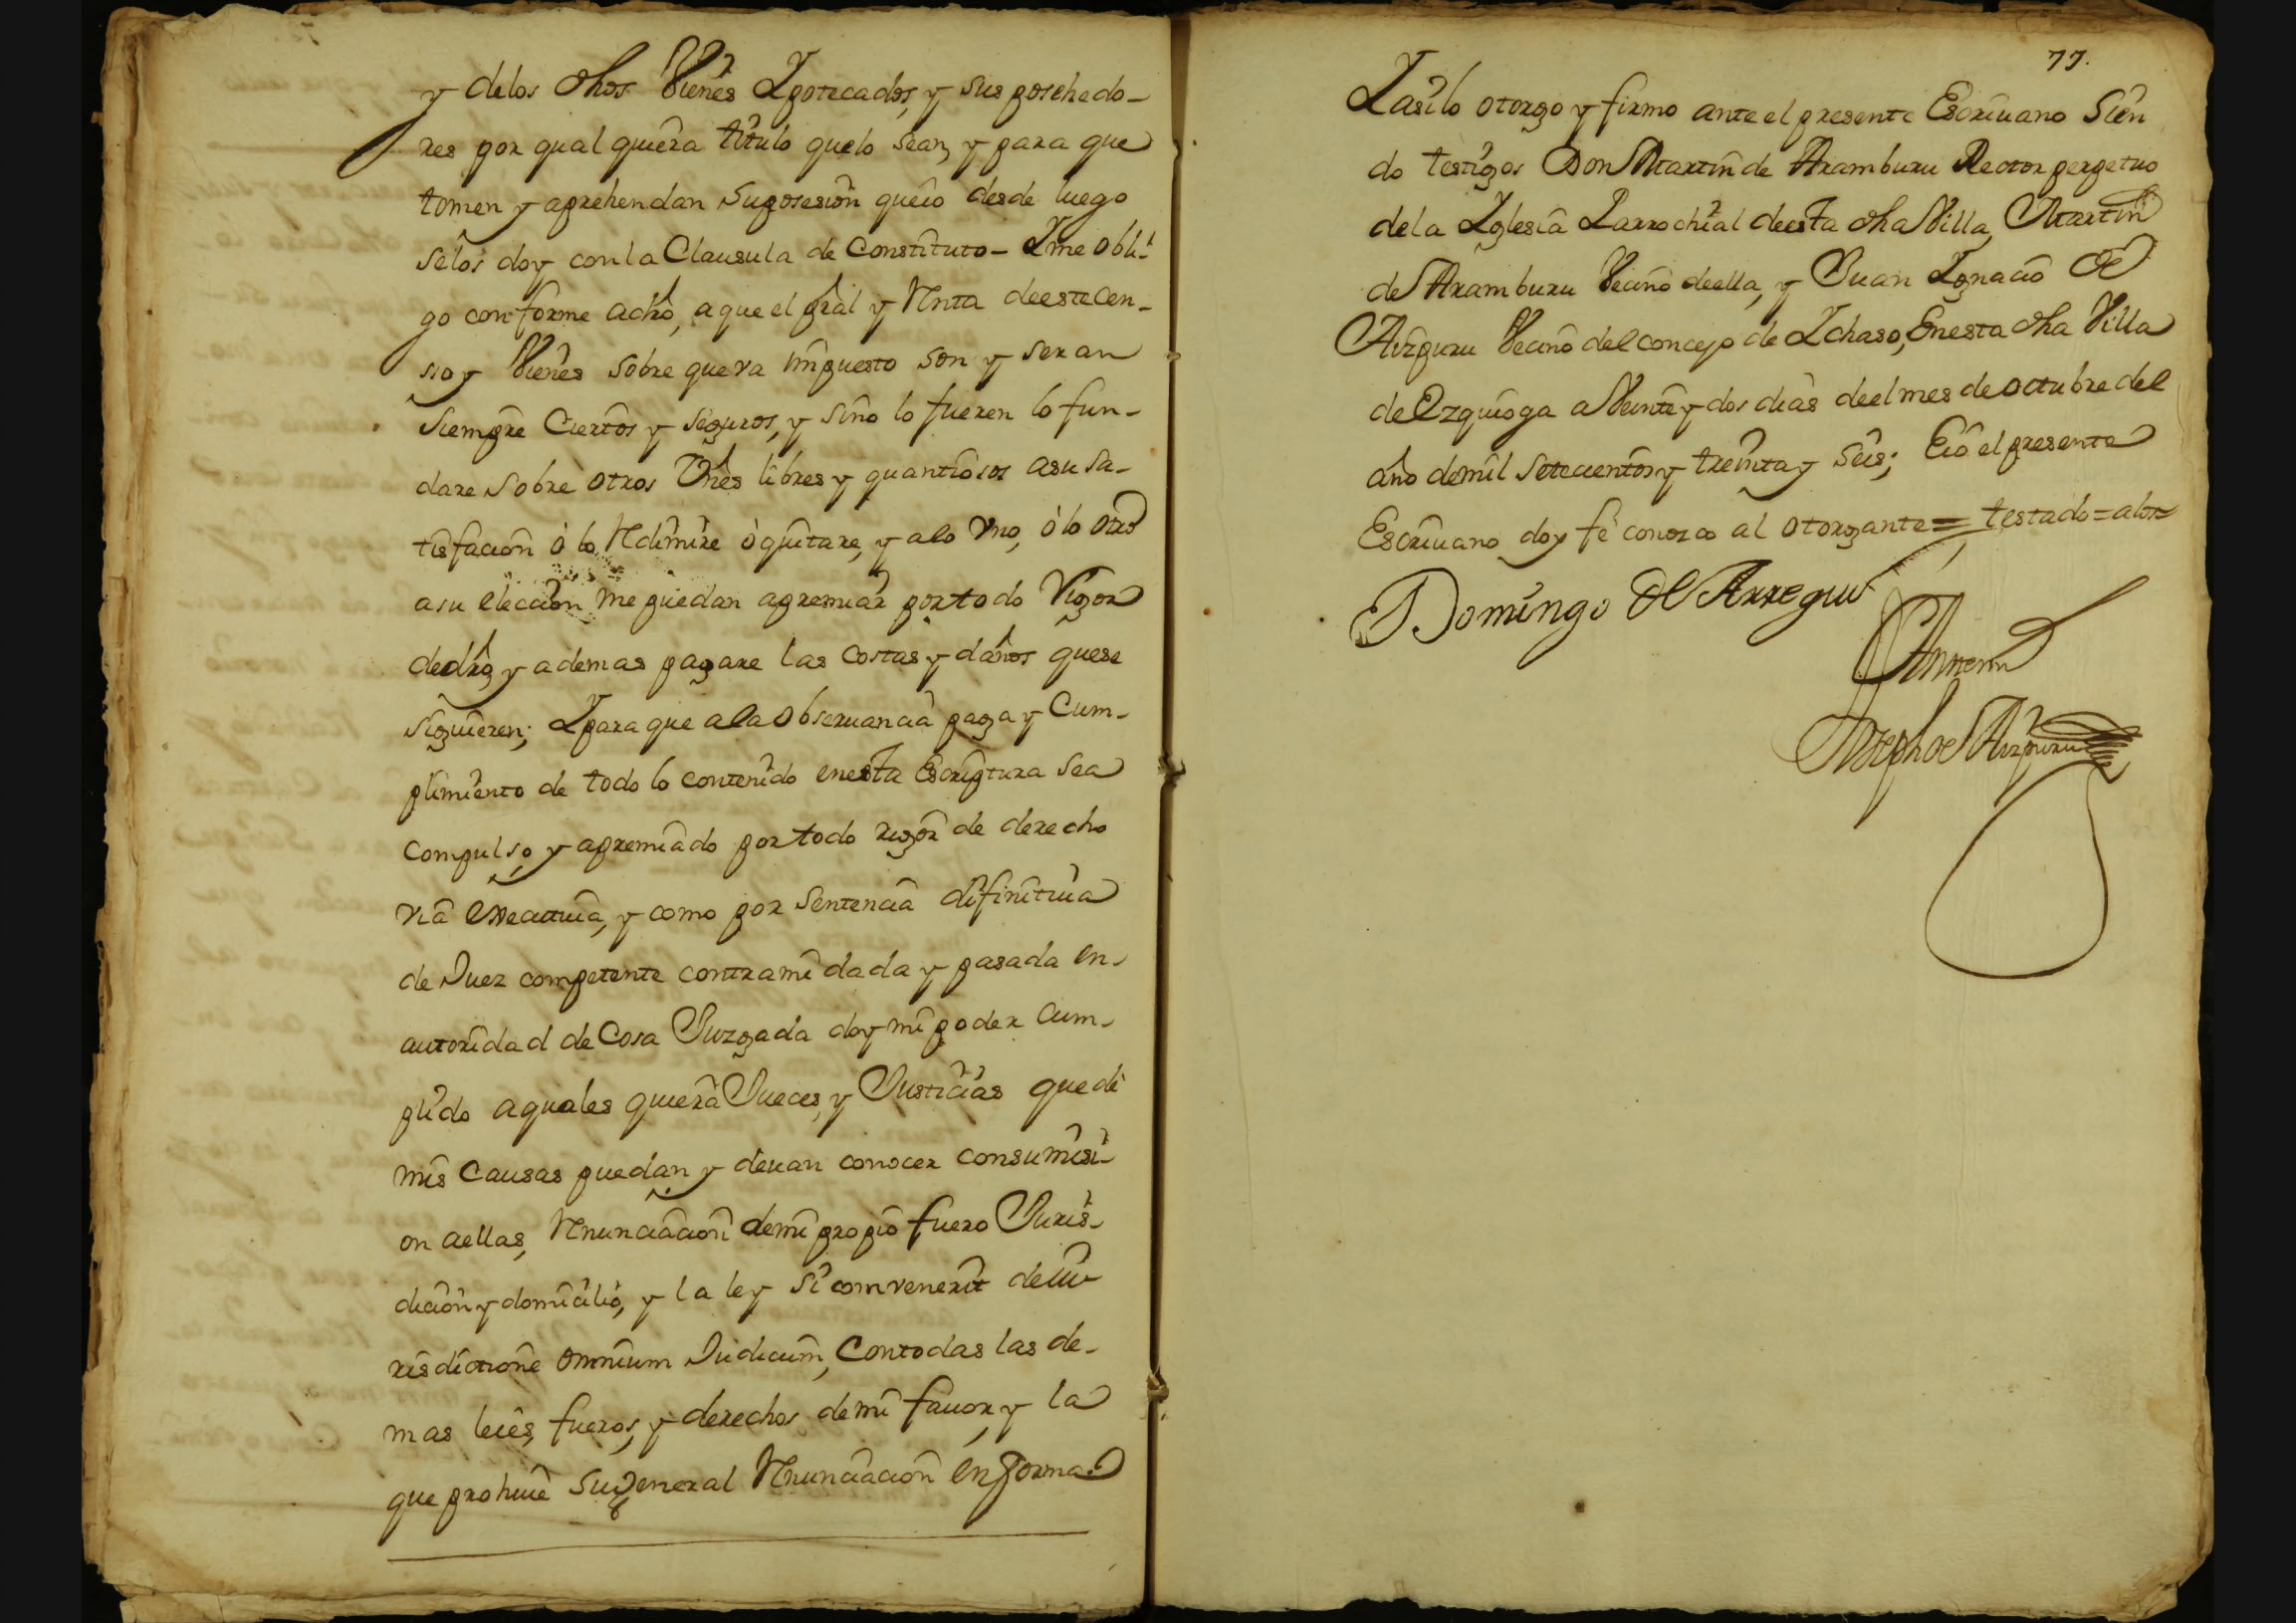 y delos dhos Vienes Ypotecados, y sus posehedo-
res por qual quiera titulo quelo sean, y para que
tomen y aprehendan suposesion queio desde luego
selos doy con la Clausula de Constituto - Yme obli-
go conforme adro, a que el pral y Rnta deestecen-
so y Vienes sobre que va impuesto son y seran
siempre Ciertos y seguros, y sino lo fueren lo fun-
dare sobre otros Vnes libres y quantiosos asu sa-
tisfacion ó lo Redimire ó quitare, y alo vno, ó lo otro
asu eleccion me puedan apremiar por todo Vigor
dedro, y ademas pagare las Costas y daños quese
siguieren; Ypara que ala Obseruancia paga y Cum-
plimiento de todo lo contenido enesta Escriptura sea
compulso y apremiado por todo rigor de derecho
via executiua, y como por sentencia difinitiua
de Juez competente contrami dada y pasada en
autoridad de Cosa Juzgada doy mi poder Cum-
plido aquales quiera Jueces, y Justicias que de
mis Causas puedan y deuan conocer consumisi-
on aellas, Rnunciacion demi propio fuero Juris-
dicion y domicilio, y la ley si comvenerit de iu-
risdictione omnium Judicum, Contodas las de-
mas leies, fueros, y derechos demi fauor, y la
que prohiue su general Rnunciacion en forma.
77.
Yasilo otorgo y firmo ante el presente Escriuano Sien
do testigos Don Martin de Aramburu Rector perpetuo
dela Yglesia Parrochial deesta dha Villa, Martin
de Aramburu Vecino deella, y Juan Ygnacio de
Aizpuru Vecino del concejo de Ychaso, Enesta dha Villa
de Ezquioga a Veinte y dos dias deel mes de octubre del
año demil setecientos y treinta y seis; Eio el presente
Escriuano doy fe conozco al otorgante = testado = alos =
Domingo de Arregui
Antemi
Joseph de Aizpuru